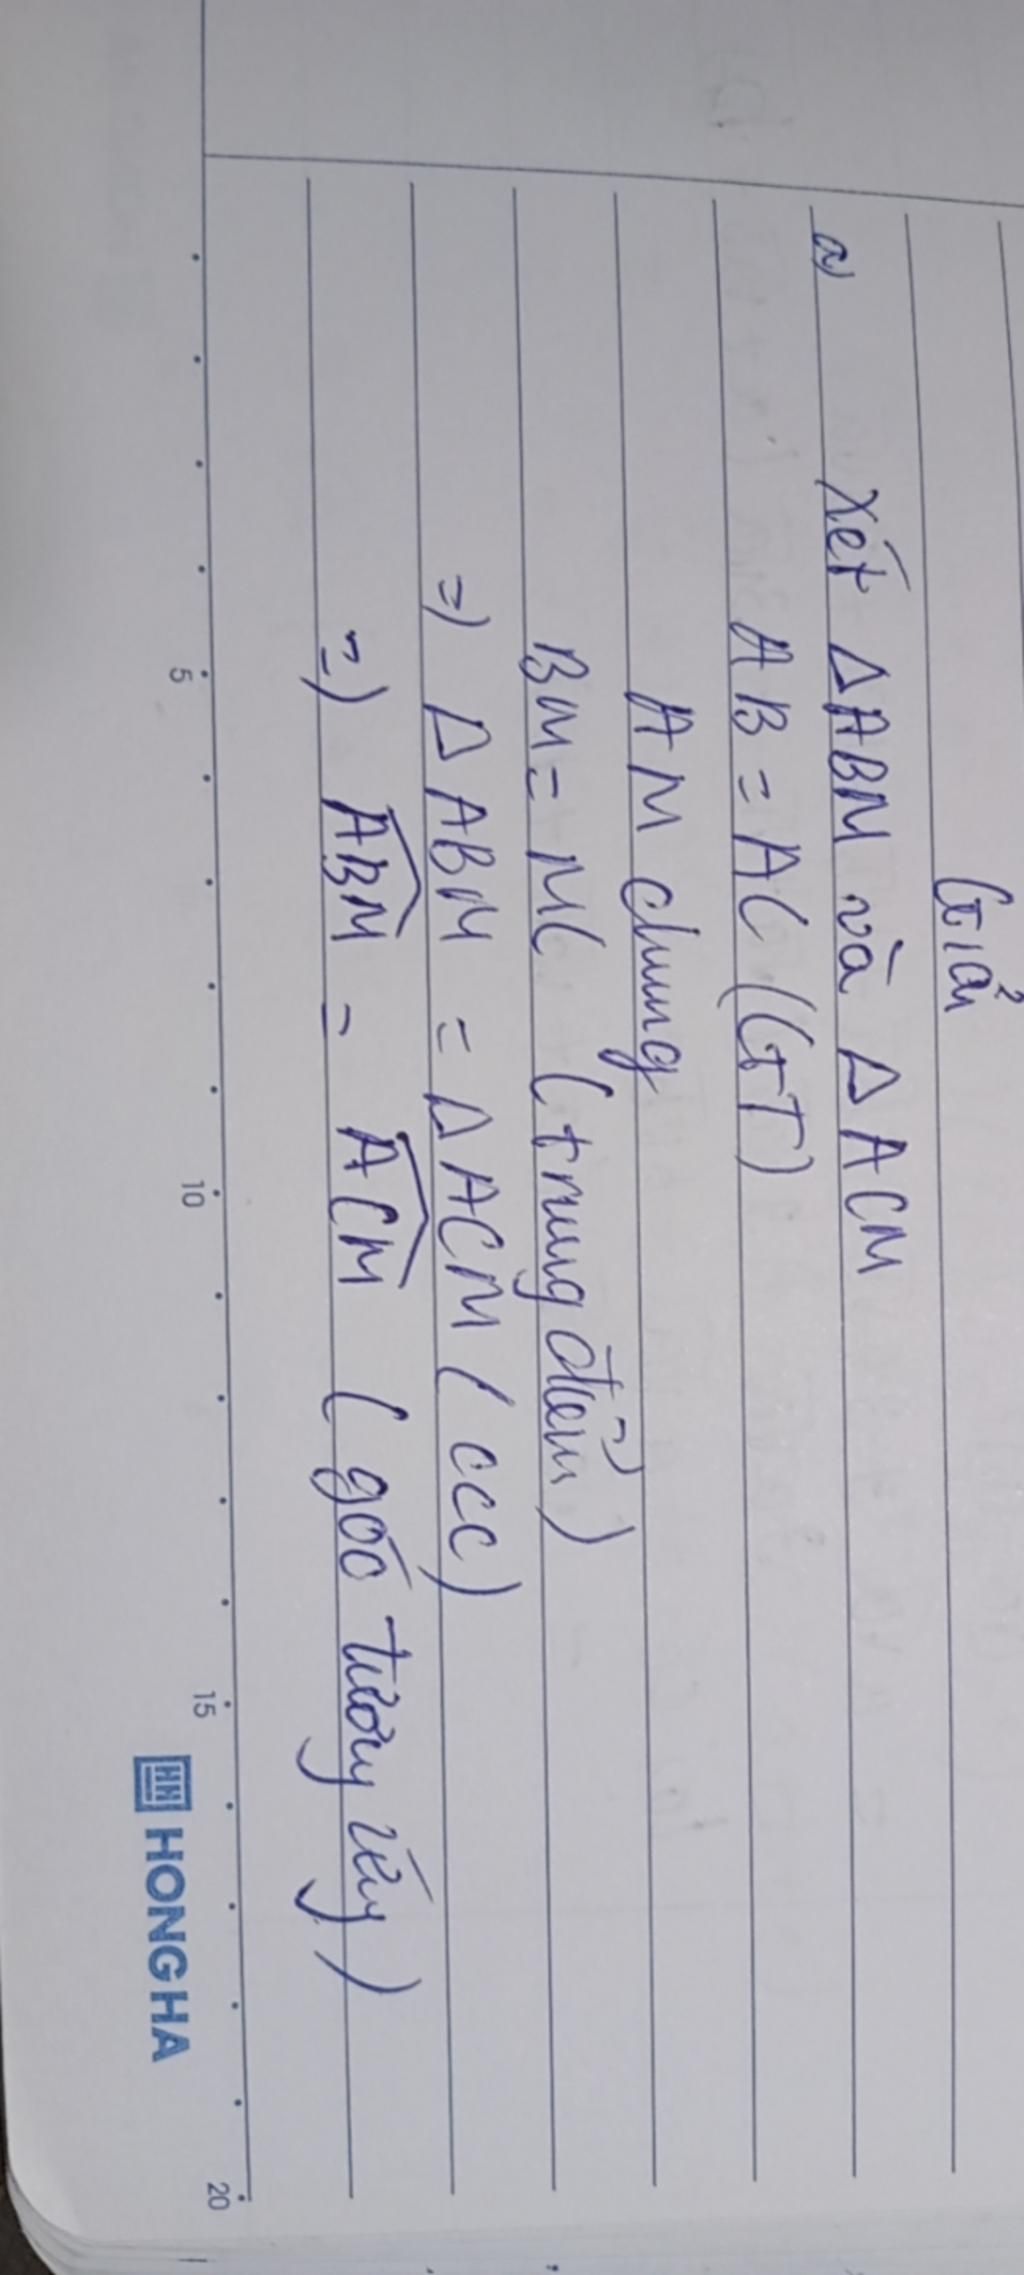 Giải
a) Xét Δ ABM và Δ ACM
AB = AC (GT)
AM chung
BM = MC (trung điểm)
=) Δ ABM = Δ ACM (ccc)
=) \widehat{ABM} = \widehat{ACM} (góc tương ứng)
5 10 15 20
HONG HA